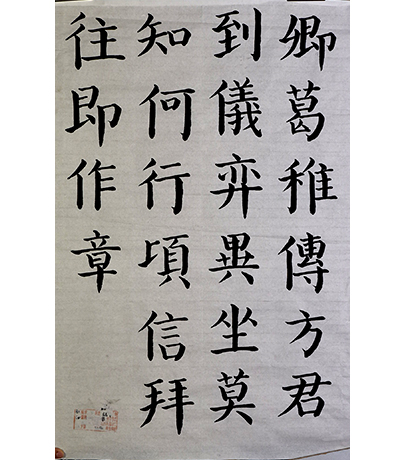 卿葛稚傳方君
到儀弈異坐莫
知何行項信拜
往即作章